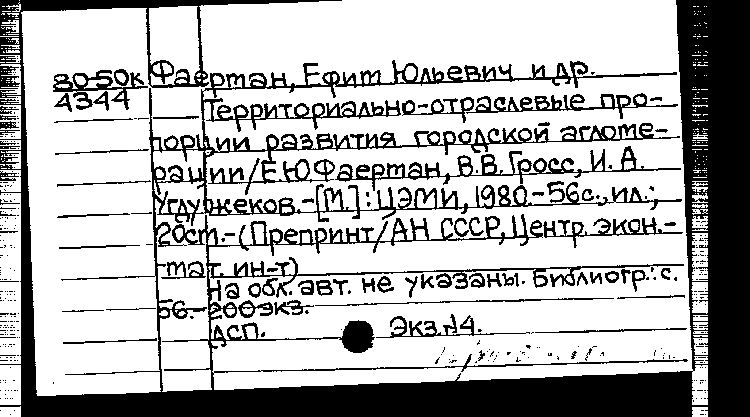 80-50к Фаертан, Ефим Юльевич и др.
4344 Территориально-отраслевые про-
порции развития городской агломе-
рации/Е.Ю.Фаертан, В.В. Гросс, И. А.
Углужеков.-[М.]: ЦЭМИ, 1980.-56с., ил.;
20см.-(Препринт/АН СССР, Центр. экон.-
мат. ин-т)
На обл. авт. не указаны. Библиогр.: с.
56.-200экз.
ДСП. Экз.№4.